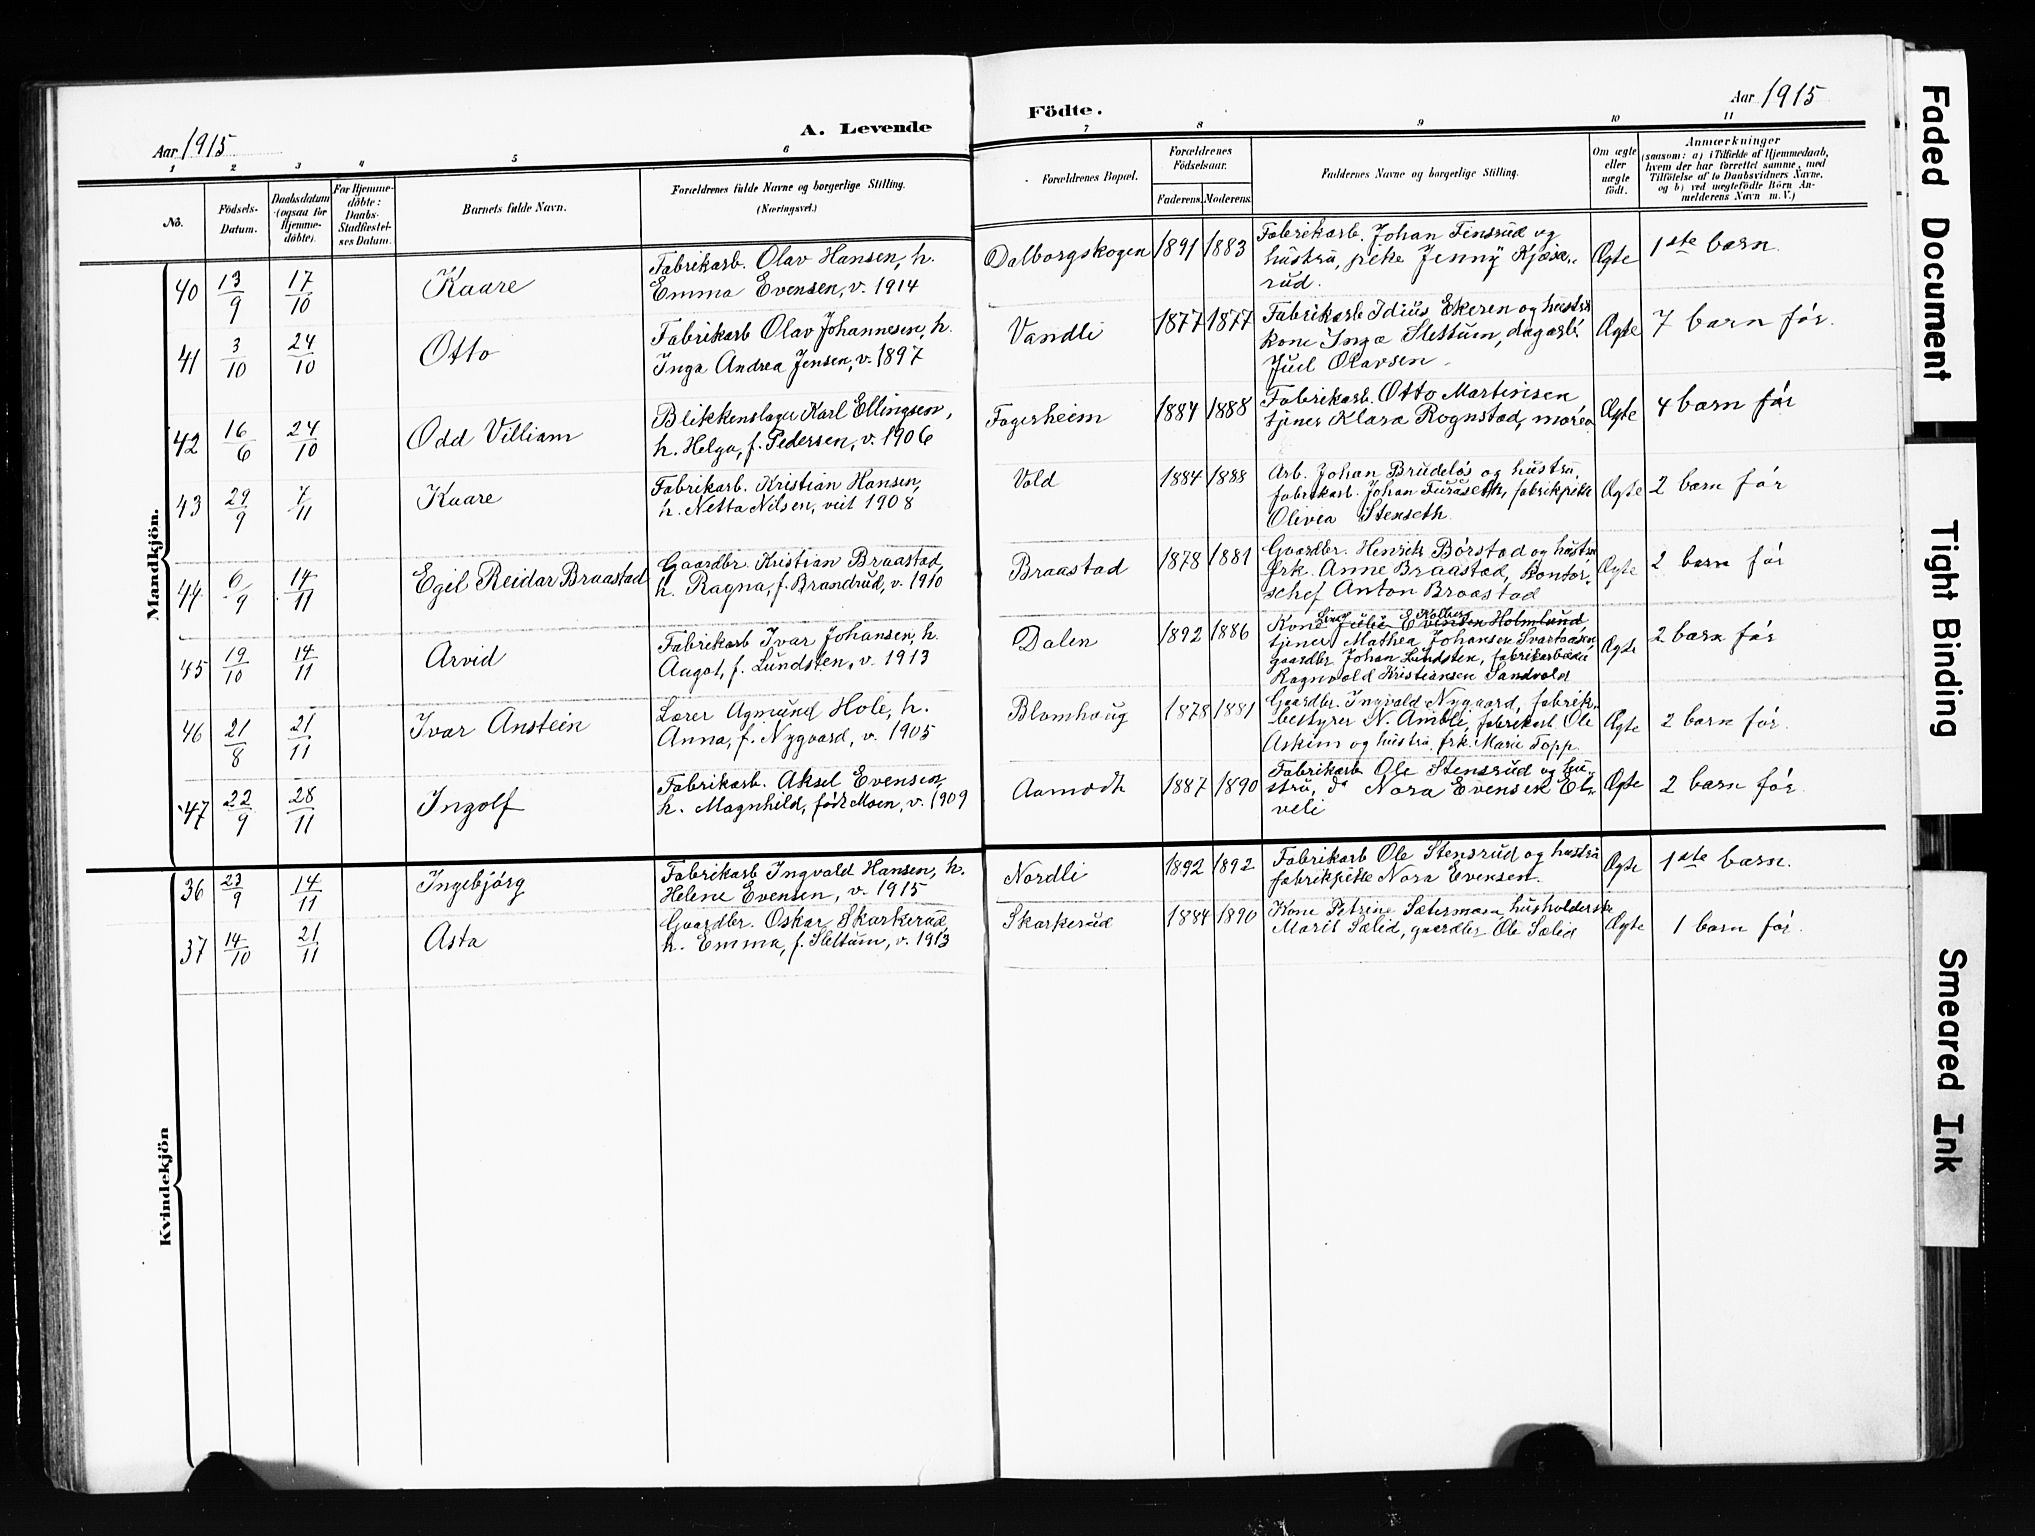 Aar 1915
A. Levende
Födte.
Aar 1915
1 2 3 4 5 6 7 8 9 10 11
No.
Födsels-
Datum.
Daabsdatum
(ogsaa for
Hjemme-
döbte).
For Hjemme-
döbte:
Daabs-
Stadfæstel-
ses Datum.
Barnets fulde Navn.
Forældrenes fulde Navne og borgerlige Stilling.
(Næringsvei.)
Forældrenes Bopæl.
Forældrenes
Födselsaar.
Faderens. Moderens.
Faddernes Navne og borgerlige Stilling.
Om ægte
eller
uægte
født.
Anmærkninger
(saasom: a) i Tilfælde af Hjemmedaab,
hvem der har forrettet samme, med
Tilföielse af to Daabsvidners Navne,
og b) ved uægtefödte Börn An-
melderens Navn m. V.)
Mandkjön.
40 13/9 17/10 Kaare
Fabrikarb. Olav Hansen, h.
Emma Evensen, v. 1914
Dalborgskogen 1891 1883
Fabrikarb. Johan Finsrud og
hustru, pike Jenny Kjøse-
rud.
Ægte 1ste barn.
41 3/10 24/10 Otto
Fabrikarb Olav Johannesen, h.
Inga Andrea Jensen, v. 1897
Vandli 1877 1877
Fabrikarb Idius Ekeren og hustru
kone Inga Slettum, dagarb.
Juel Olavsen
Ægte 7 barn før.
42 16/6 24/10 Odd Villiam
Blikkenslager Karl Ellingsen,
h. Helga, f. Pedersen, v. 1906
Fagerheim 1884 1888
Fabrikarb. Otto Martinsen,
tjener Klara Rognstad, moren
Ægte 4 barn før
43 29/9 7/11 Kaare
Fabrikarb. Kristian Hansen,
h. Netta Nilsen, viet 1908
Vold 1884 1888
Arb. Johan Brudeløs og hustru,
fabrikarb. Johan Furuseth, fabrikpike
Olivia Stenseth
Ægte 2 barn før
44 6/9 14/11 Egil Reidar Braastad
Gaardbr. Kristian Braastad,
h. Ragna, f. Brandrud, v. 1910
Braastad 1878 1881
Gaardbr. Henrik Børstad og hustru
frk. Anne Braastad, kontor-
schef Anton Braastad
Ægte 2 barn før
45 19/10 14/11 Arvid
Fabrikarb Ivar Johansen, h.
Aagot, f. Lundsten, v. 1913
Dalen 1892 1886
Kolberg
Kone Julie Evensen Holmlund
tjener Mathea Johansen Svartaasen
gaardbr Johan Lundsten, fabrikarbeider
Ragnvald Kristiansen Sandvold
Ægte 2 barn før
46 21/8 21/11 Ivar Anstein
Lærer Agmund Hole, h.
Anna, f. Nygaard, v. 1905
Blomhaug 1878 1881
Gaardbr. Ingvald Nygaard, fabrik-
bestyrer N. Ambli, fabrikarb Ole
Askim og hustru, frk. Marie Topp
Ægte 2 barn før.
47 22/9 28/11 Ingolf
Fabrikarb. Aksel Evensen,
h. Magnhild, født Moen, v. 1909
Aamodt 1887 1890
Fabrikarb Ole Stensrud og hu-
stru, do Nora Evensen El-
veli
Ægte 2 barn før.
Kvindekjön
36 23/9 14/11 Ingebjørg
Fabrikarb Ingvald Hansen, h.
Helene Evensen, v. 1915
Nordli 1892 1892
Fabrikarb Ole Stensrud og hustru
fabrikpike Nora Evensen.
Ægte 1ste barn.
37 14/10 21/11 Asta
Gaardbr. Oskar Skarkerud,
h. Emma, f. Slettum, v. 1913
Skarkerud 1884 1890
Kone Petrine Sætermoen, husholderske
Marit Sælid, gaardbr Ole Sælid
Ægte 1 barn før.
Faded Document
Tight Binding
Smeared Ink